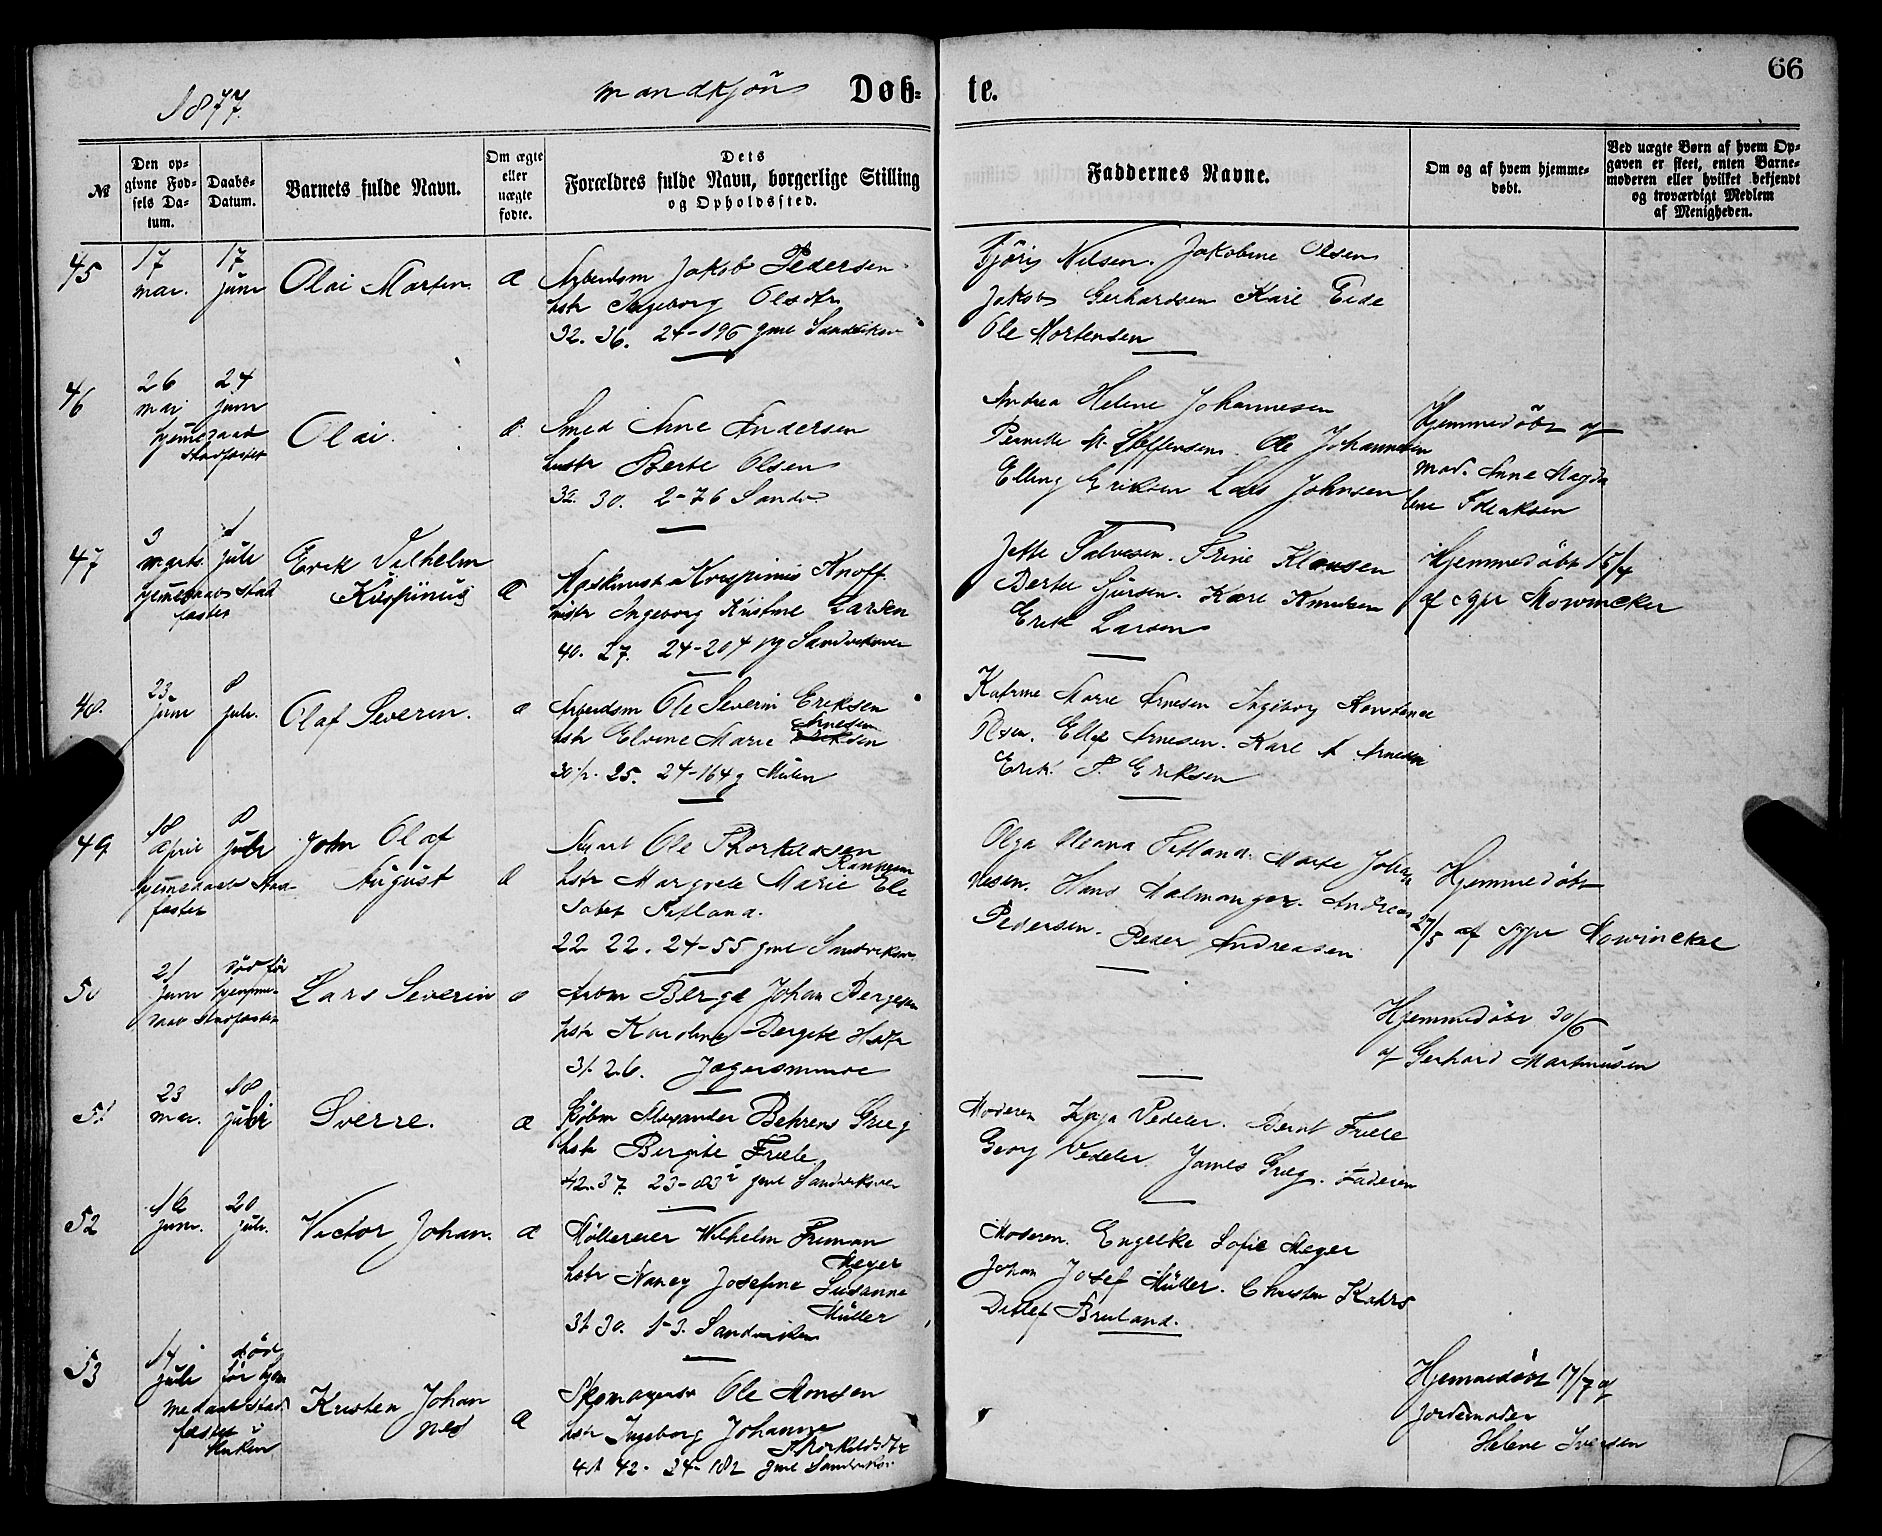 66
1877.
mandkjøn
Døb-
te.
№
Den op-
givne Fød-
sels Da-
tum.
Daabs-
Datum.
Barnets fulde Navn.
Om ægte
eller
uægte
fødte.
Dets
Forældres fulde Navn, borgerlige Stilling
og Opholdssted.
Faddernes Navne.
Om og af hvem hjemme-
døbt.
Ved uægte Børn af hvem Op-
gaven er skeet, enten Barne-
moderen eller hvilket bekjendt
og troværdigt Medlem
af Menigheden.
45
17
mai.
17
juni
Olai Martin
a
Arbeidsm Jakob Pedersen
hstr Ingeborg Olsdtr
32. 36. 24-196 gml Sandviksv
Nilsen. Jakobine Olsen
Jakob Gerhardsen Karl Eide
Ole Mortensen
46
26
mai
24
juni
hjemedaab
stadfæstet
Olai.
a
Smed Arne Andersen
hustr Berte Olsen
32. 30. 2-76 Sandv
Andrea Helene Johannesen
Pernille M. Steffensen. Ole Johannesen
Elling Eriksen Lars Johnsen
Hjemmedøbt af
mad. Anne Magda
lene
47
3
marts
1
juli
hjemedaab stad
fæstet
Erik Vilhelm
Krispinus
a
Maskinist Krispinus Knoff
hustr Ingeborg Kristine Larsen
40. 27. 24-204 Sandviksvei
Jette Trine Klausen
Berte Sjursen. Karl Knudsen
Erik Larsen
Hjemmedøbt 15/4
af sgpr Mowinckel
48.
23
juni
8
juli.
Olaf Severin.
a
Arbeidsm Ole Severin Eriksen
Arnesen
hstr Elvine Marie
30½. 25. 24-164 g Mulen
Katrine Marie Arnesen Ingeborg Konstanse
Olsen. Ellef Arnesen. Karl A Arnesen
Erik S. Eriksen
49
18
April
8
juli
hjemedaab stad-
fæstet
John Olaf
August
a
Ole Thorkildsen
hstr Margrete Marie Eli
sabet Fetland.
22 22. 24-55 gml Sandviksv.
Olga Oleana Fetland. Marte Johan
nesen. Hans Malmanger. Andreas
Pedersen. Peder Andreasen
Hjemmedøbt
27/5 af sgpr Mowinckel
50
21
juni
død før
hjemme-
daab stadfæstet
Lars Severin
a
Arbm Berge Johan Bergesen
hstr Karoline Bergitte Hsdtr
31 26. Jægersminde
Hjemmedøbt 30/6
af Gerhard Martinusen
51
23
mai.
18
juli
Sverre.
a
Kjøbm Alexander Behrens Grieg
hstr Bergite Friele
42. 37. 23-83 gml Sandviksvei
Moderen Kaja Vedeler. Bernt Friele
Georg Vedeler. James Grieg. Faderen
52
16
juni.
20
juli.
Victor Johan.
a
Mølleeier Wilhelm Friman
Meyer
hstr Nancy Josefine Susanne
Müller
31 30. 1-3. Sandviken
Moderen. Engelke Sofie Meyer
Johan Josef Müller. Christen Kahrs
Ditlef Bruland.
53
14
juli
død
før hjem
medaab stad
fæstet i
kirken
Kristen Johan
nes
a
Skomagersv Ole Monsen
hstr Ingeborg Johanne
Thorkildsdtr
41 42. 24-182 gml Sandviksv
Hjemmedøbt 17/7 af
Jordemoder
Helene Iversen